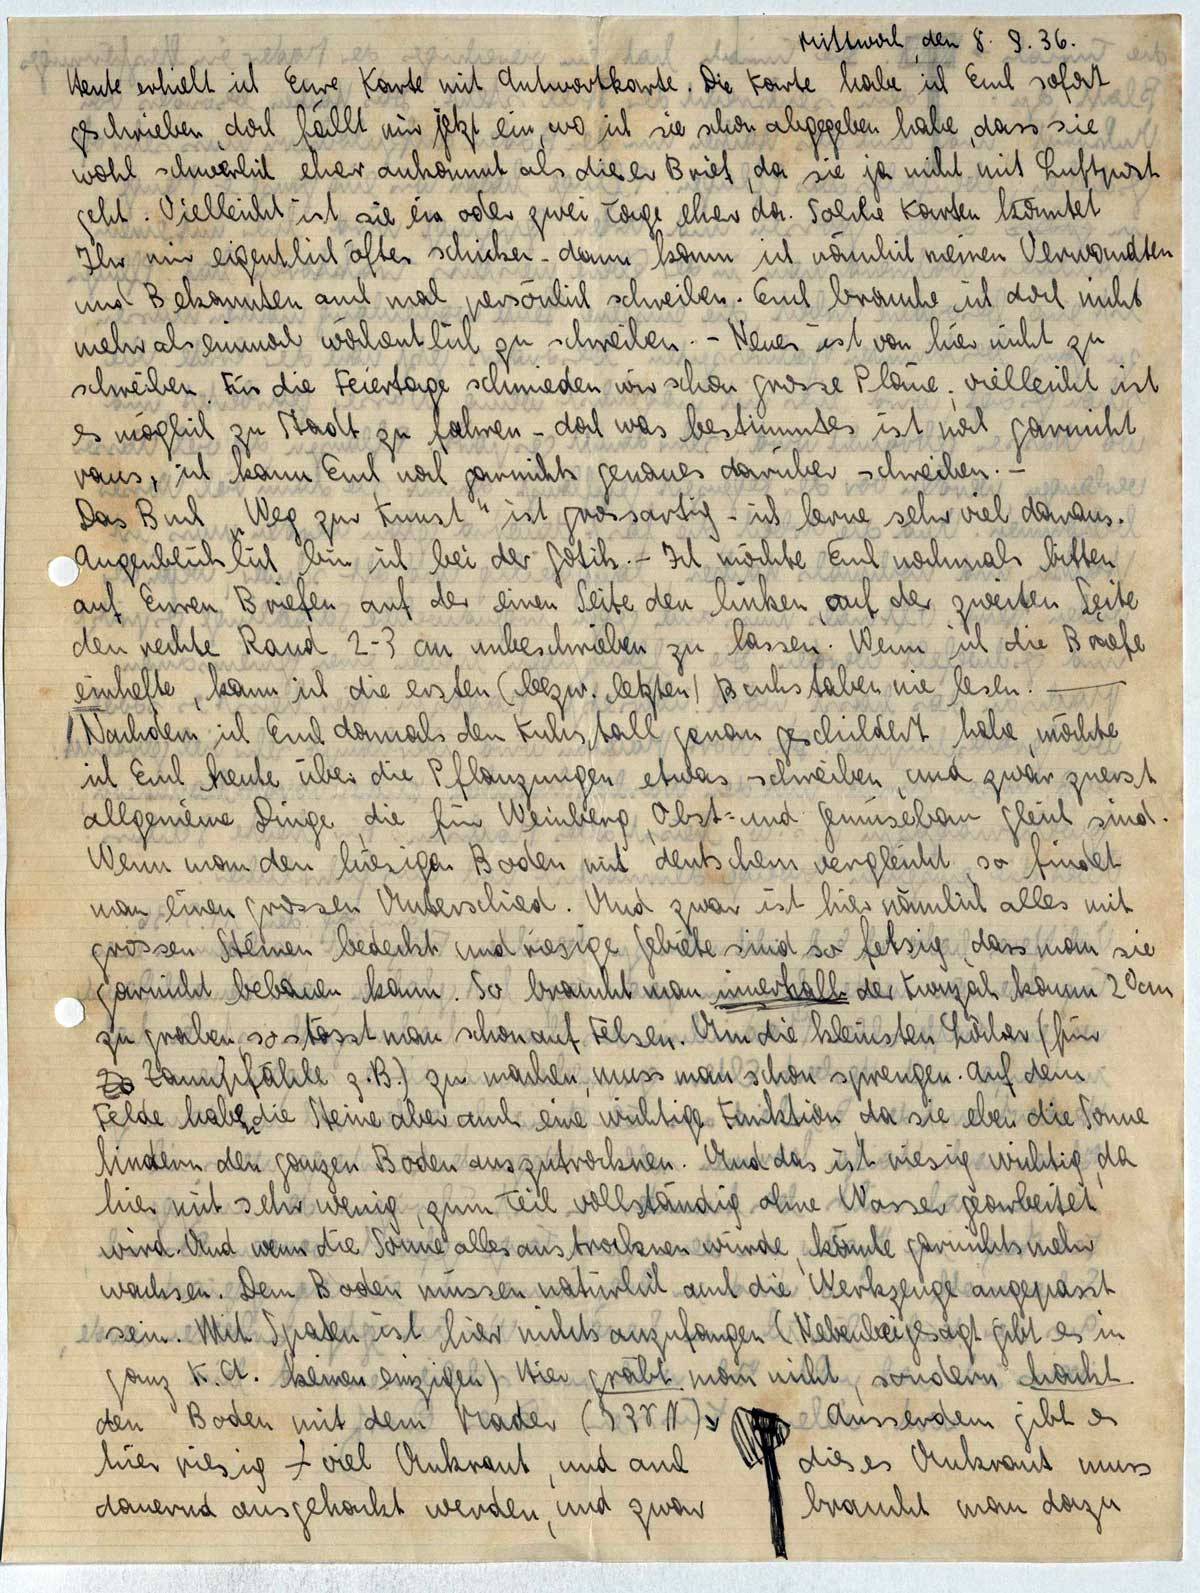 Mittwoch, den 8. 9. 36.
Heute erhielt ich Eure Karte mit Antwortkarte. Die Karte habe ich Euch sofort
geschrieben, doch fällt mir jetzt ein, wo ich sie schon abgegeben habe, dass sie
wohl schwerlich eher ankommt als dieser Brief, da sie ja nicht mit Luftpost
geht. Vielleicht ist sie ein oder zwei Tage eher da. Solche Karten könntet
Ihr mir eigentlich öfter schicken - dann kann ich nämlich meinen Verwandten
und Bekannten auch mal persönlich schreiben. Euch brauche ich doch nicht
mehr als einmal wöchentlich zu schreiben. - Neues ist von hier nicht zu
schreiben. Für die Feiertage schmieden wir schon grosse Pläne, vielleicht ist
es möglich zu Stadt zu fahren - doch was bestimmtes ist noch garnicht
raus, ich kann Euch noch garnichts genaues darüber schreiben. -
Das Buch „Weg zur Kunst" ist grossartig - ich lerne sehr viel daraus.
Augenblicklich bin ich bei der Gotik. - Ich möchte Euch nochmals bitten
auf Euren Briefen auf der einen Seite den linken, auf der zweiten Seite
den rechte Rand 2-3 cm unbeschrieben zu lassen. Wenn ich die Briefe
einhefte, kann ich die ersten (bezw. letzten) Buchstaben nie lesen. —
Nachdem ich Euch damals den Kuhstall genau geschildert habe, möchte
ich Euch heute über die Pflanzungen etwas schreiben, und zwar zuerst
allgemeine Dinge, die für Weinberg, Obst- und Gemüsebau gleich sind.
Wenn man den hiesigen Boden mit deutschem vergleicht, so findet
man einen grossen Unterschied. Und zwar ist hier nämlich alles mit
grossen Steinen bedeckt und riesige Gebiete sind so felsig, dass man sie
garnicht bebauen kann. So braucht man innerhalb der Kwuzah kaum 20 cm
zu graben so stösst man schon auf Felsen. Um die kleinsten Löcher (für
Zaunpfähle z.B.) zu machen, muss man schon sprengen. Auf dem
Felde haben die Steine aber auch eine wichtige Funktion da sie eben die Sonne
hindern den ganzen Boden auszutrocknen. Und das ist riesig wichtig, da
hier mit sehr wenig, zum Teil vollständig ohne Wasser gearbeitet
wird. Und wenn die Sonne alles austrocknen würde, könnte garnichts mehr
wachsen. Dem Boden müssen natürlich auch die Werkzeuge angepasst
sein. Mit Spaten ist hier nichts anzufangen (Nebenbei gesagt gibt es in
ganz K.A. keinen einzigen) Hier gräbt man nicht, sondern hackt
den Boden mit dem Ausserdem gibt es
hier riesig viel Unkraut, und auch dieses Unkraut muss
dauernd ausgehackt werden, und zwar braucht man dazu